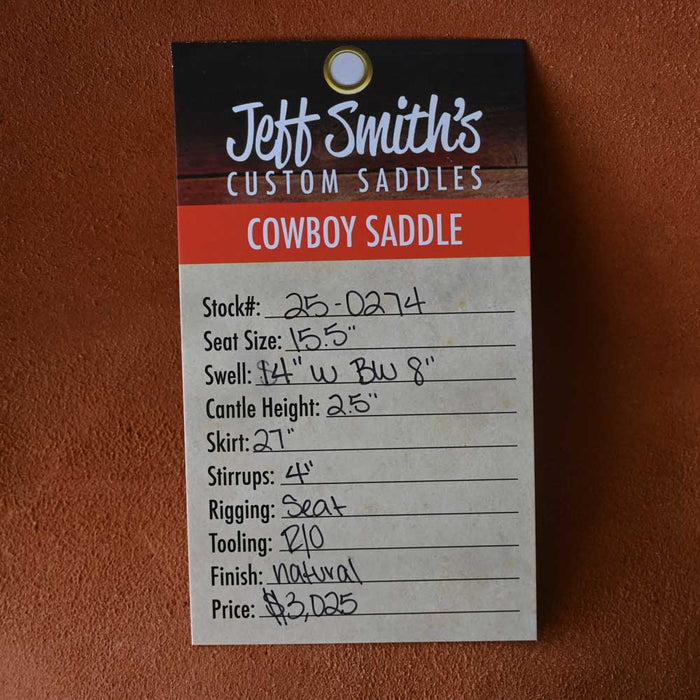 Jeff Smith's
CUSTOM SADDLES
COWBOY SADDLE
Stock#: 25-0274
Seat Size: 15.5"
Swell: 14" W BW 8"
Cantle Height: 2.5"
Skirt: 27"
Stirrups: 4"
Rigging: Seat
Tooling: R/O
Finish: natural
Price: $3,025